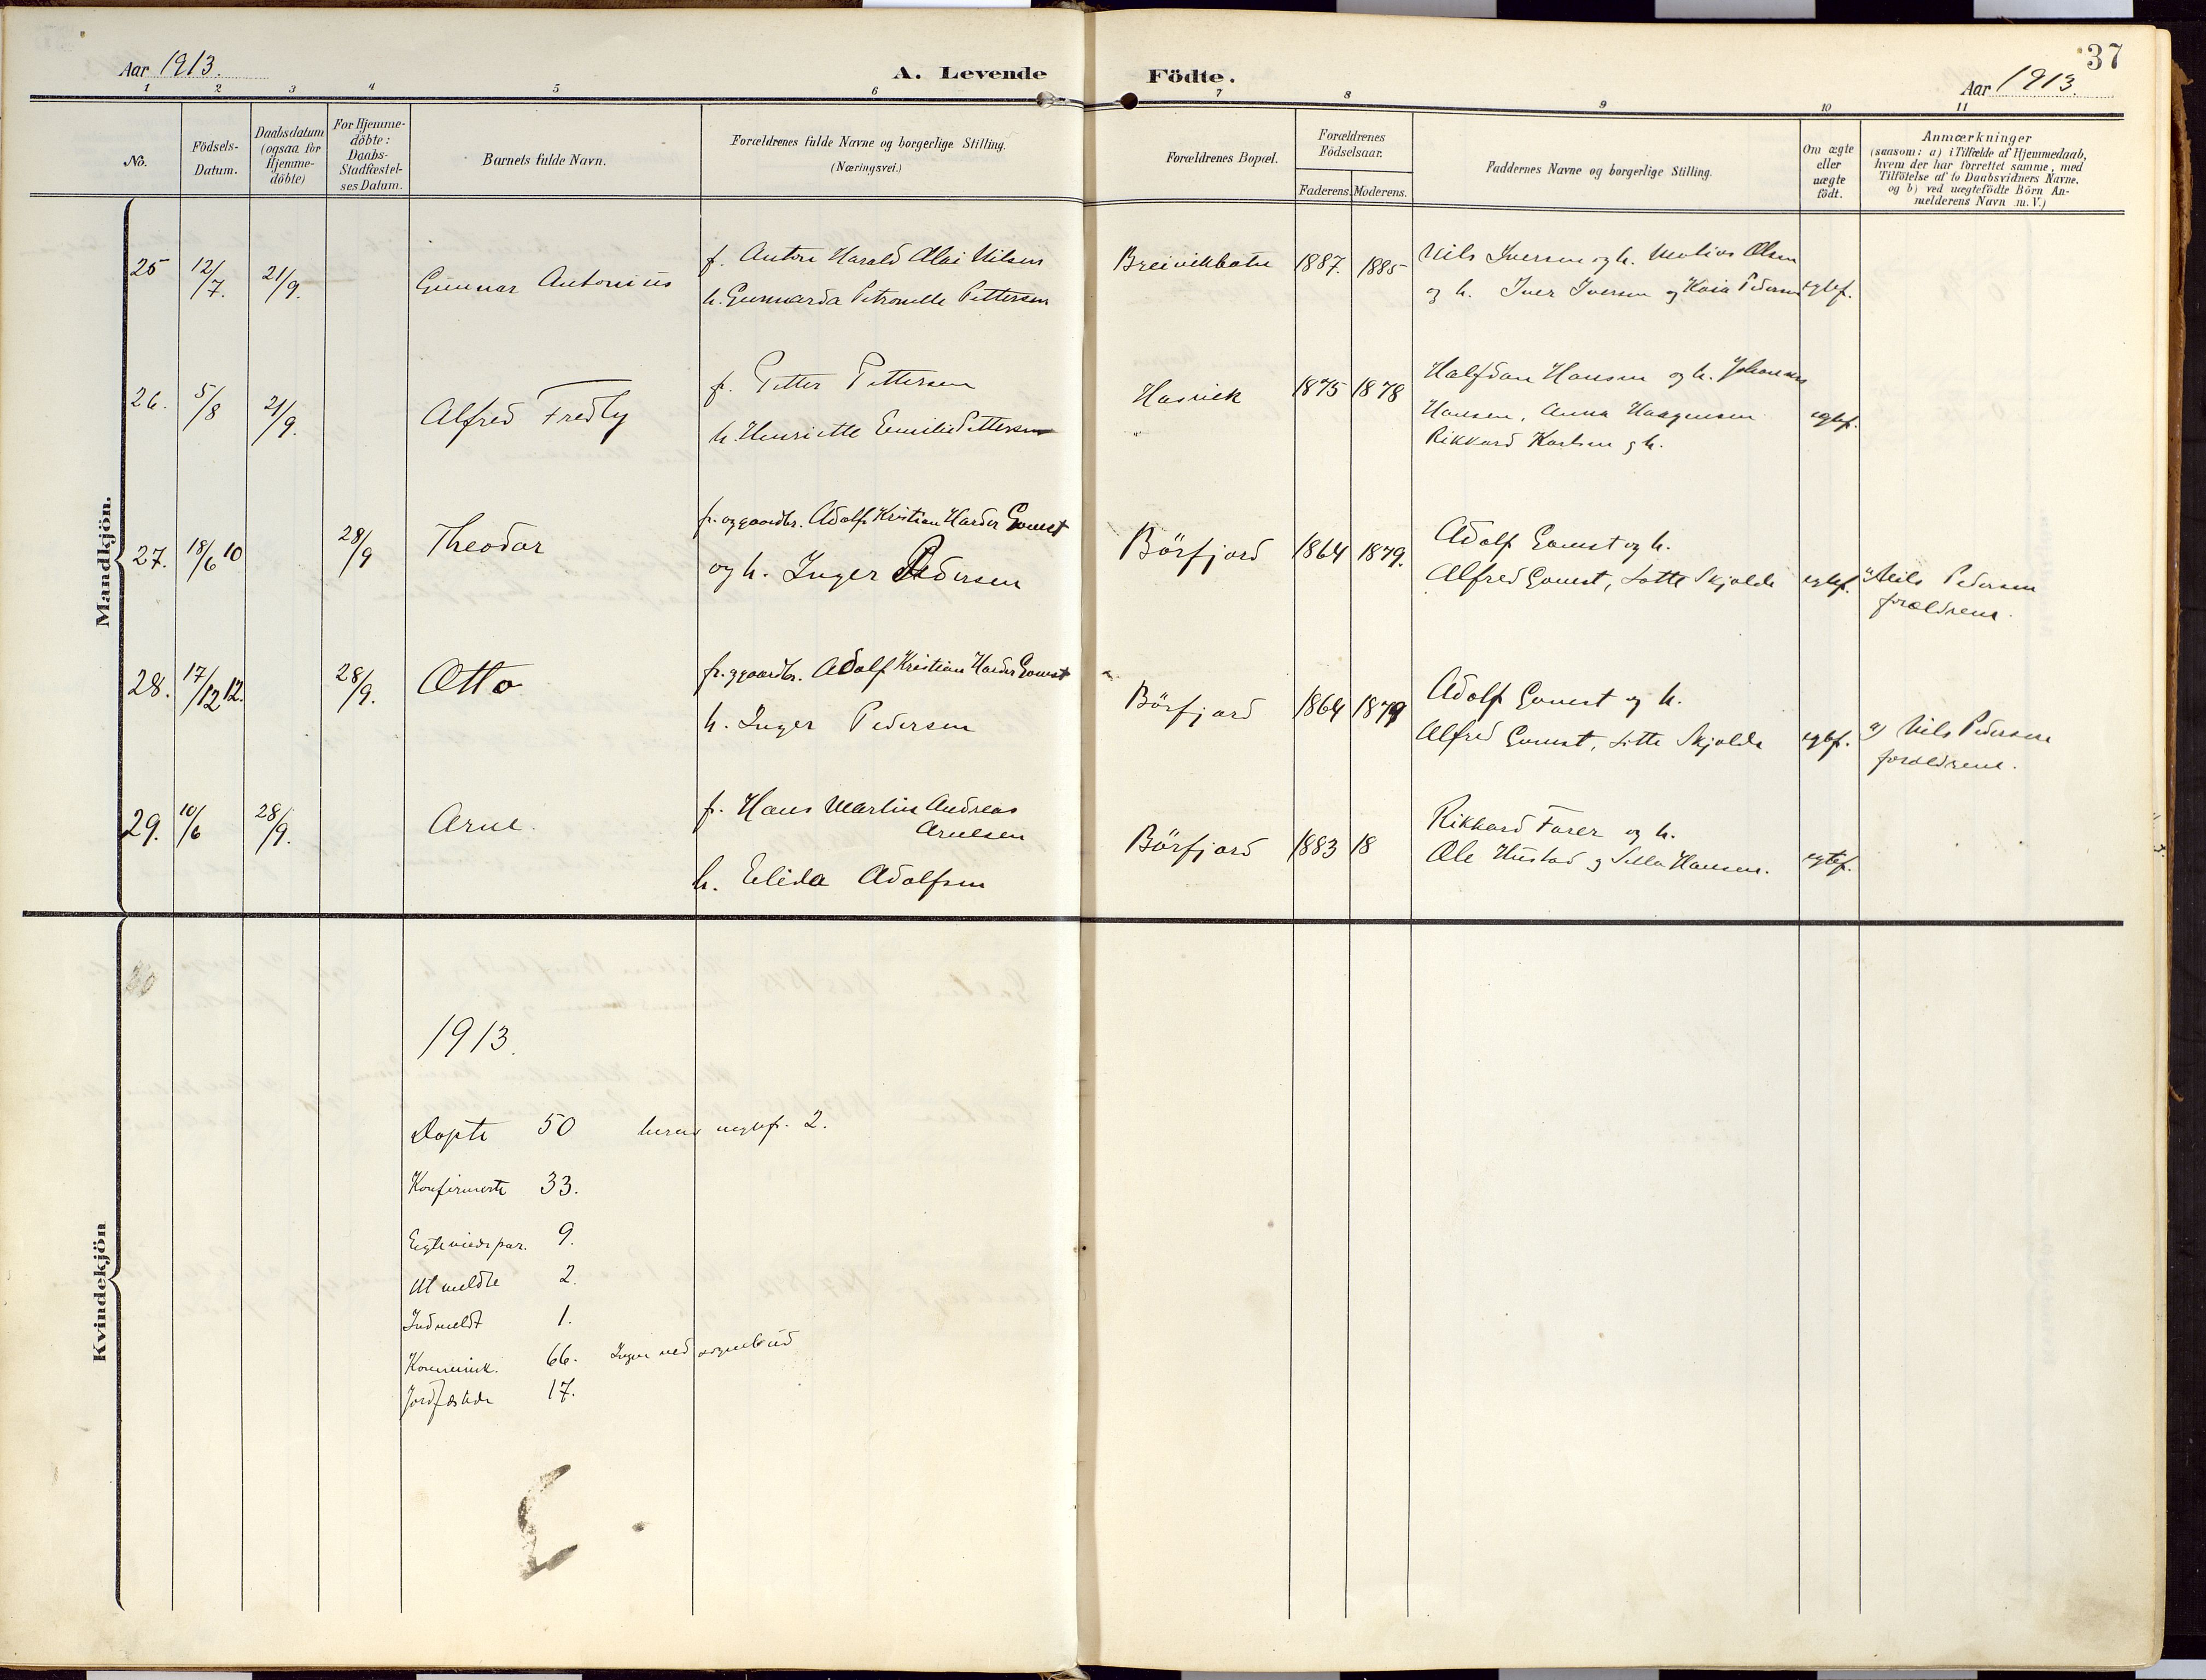 Aar 1913.
A. Levende Födte.
37
Aar 1913.
1 2 3 4 5 6 7 8 9 10 11
No.
Födsels-
Datum.
Daabsdatum
(ogsaa for
Hjemme-
döbte)
For Hjemme-
döbte:
Daabs-
Stadfæstel-
ses Datum.
Barnets fulde Navn.
Forældrenes fulde Navne og borgerlige Stilling.
(Næringsvei.)
Forældrenes Bopæl.
Forældrenes
Födselsaar.
Faderens. Moderens.
Faddernes Navne og borgerlige Stilling.
Om ægte
eller
uægte
födt.
Anmærkninger
(saasom: a) i Tilfælde af Hjemmedaab,
hvem der har forrettet samme, med
Tilföielse af to Daabsvidners Navne.
og b) ved uægtefödte Börn An-
melderens Navn m. V.)
Mandkjön.
25 12/7. 21/9. Gunnar Antonius
f. Anton Harald Nilsen
h. Gunnarda Petronelle Pettersen
Breivikbotn 1887. 1885
Nils Iversen og h. Olsen
og h. Iver Iversen og Kaia Pedersen egtef.
26. 5/8 21/9. Alfred Fredly
f. Petter Pettersen
h. Henriette Emilie Pettersen
Hasvik 1875 1878
Halfdan Hansen og h. Johannes
Hansen, Anna Haagensen
Rikkard Karlsen og h.
egtef.
27. 18/6 10 28/9 Theodor
f. og gaardbr. Adolf Kristian Harder Gamst
og h. Inger Pedersen
Börfjord 1864 1879.
Adolf Gamst og h.
Alfred Gamst, Lotte Skjolde egtef.
a) Nils Pedersen
forældrene.
28. 17/12 12. 28/9. Otto
f. og gaardbr. Adolf Kristian Harder Gamst
h. Inger Pedersen
Börfjord 1864 1879
Adolf Gamst og h.
Alfred Gamst, Lotte Skjolde egtef.
a) Nils Pedersen
forældrene.
29. 10/6 28/9. Arne.
f. Hans Martin Andreas
Arnesen
h. Elida Adolfsen
Börfjord 1883 18
Rikkard Farer og h.
Ole Hustad og Hansen. egtef.
Kvindekjön
30
1913.
Döpte 50 herav uegtef. 2.
Konfirmerte 33.
Egteviede par. 9.
Utmeldte 2.
Indmeldt 1.
Kommunik. 66. Ingen ved sognebud
Jordfæstede 17.